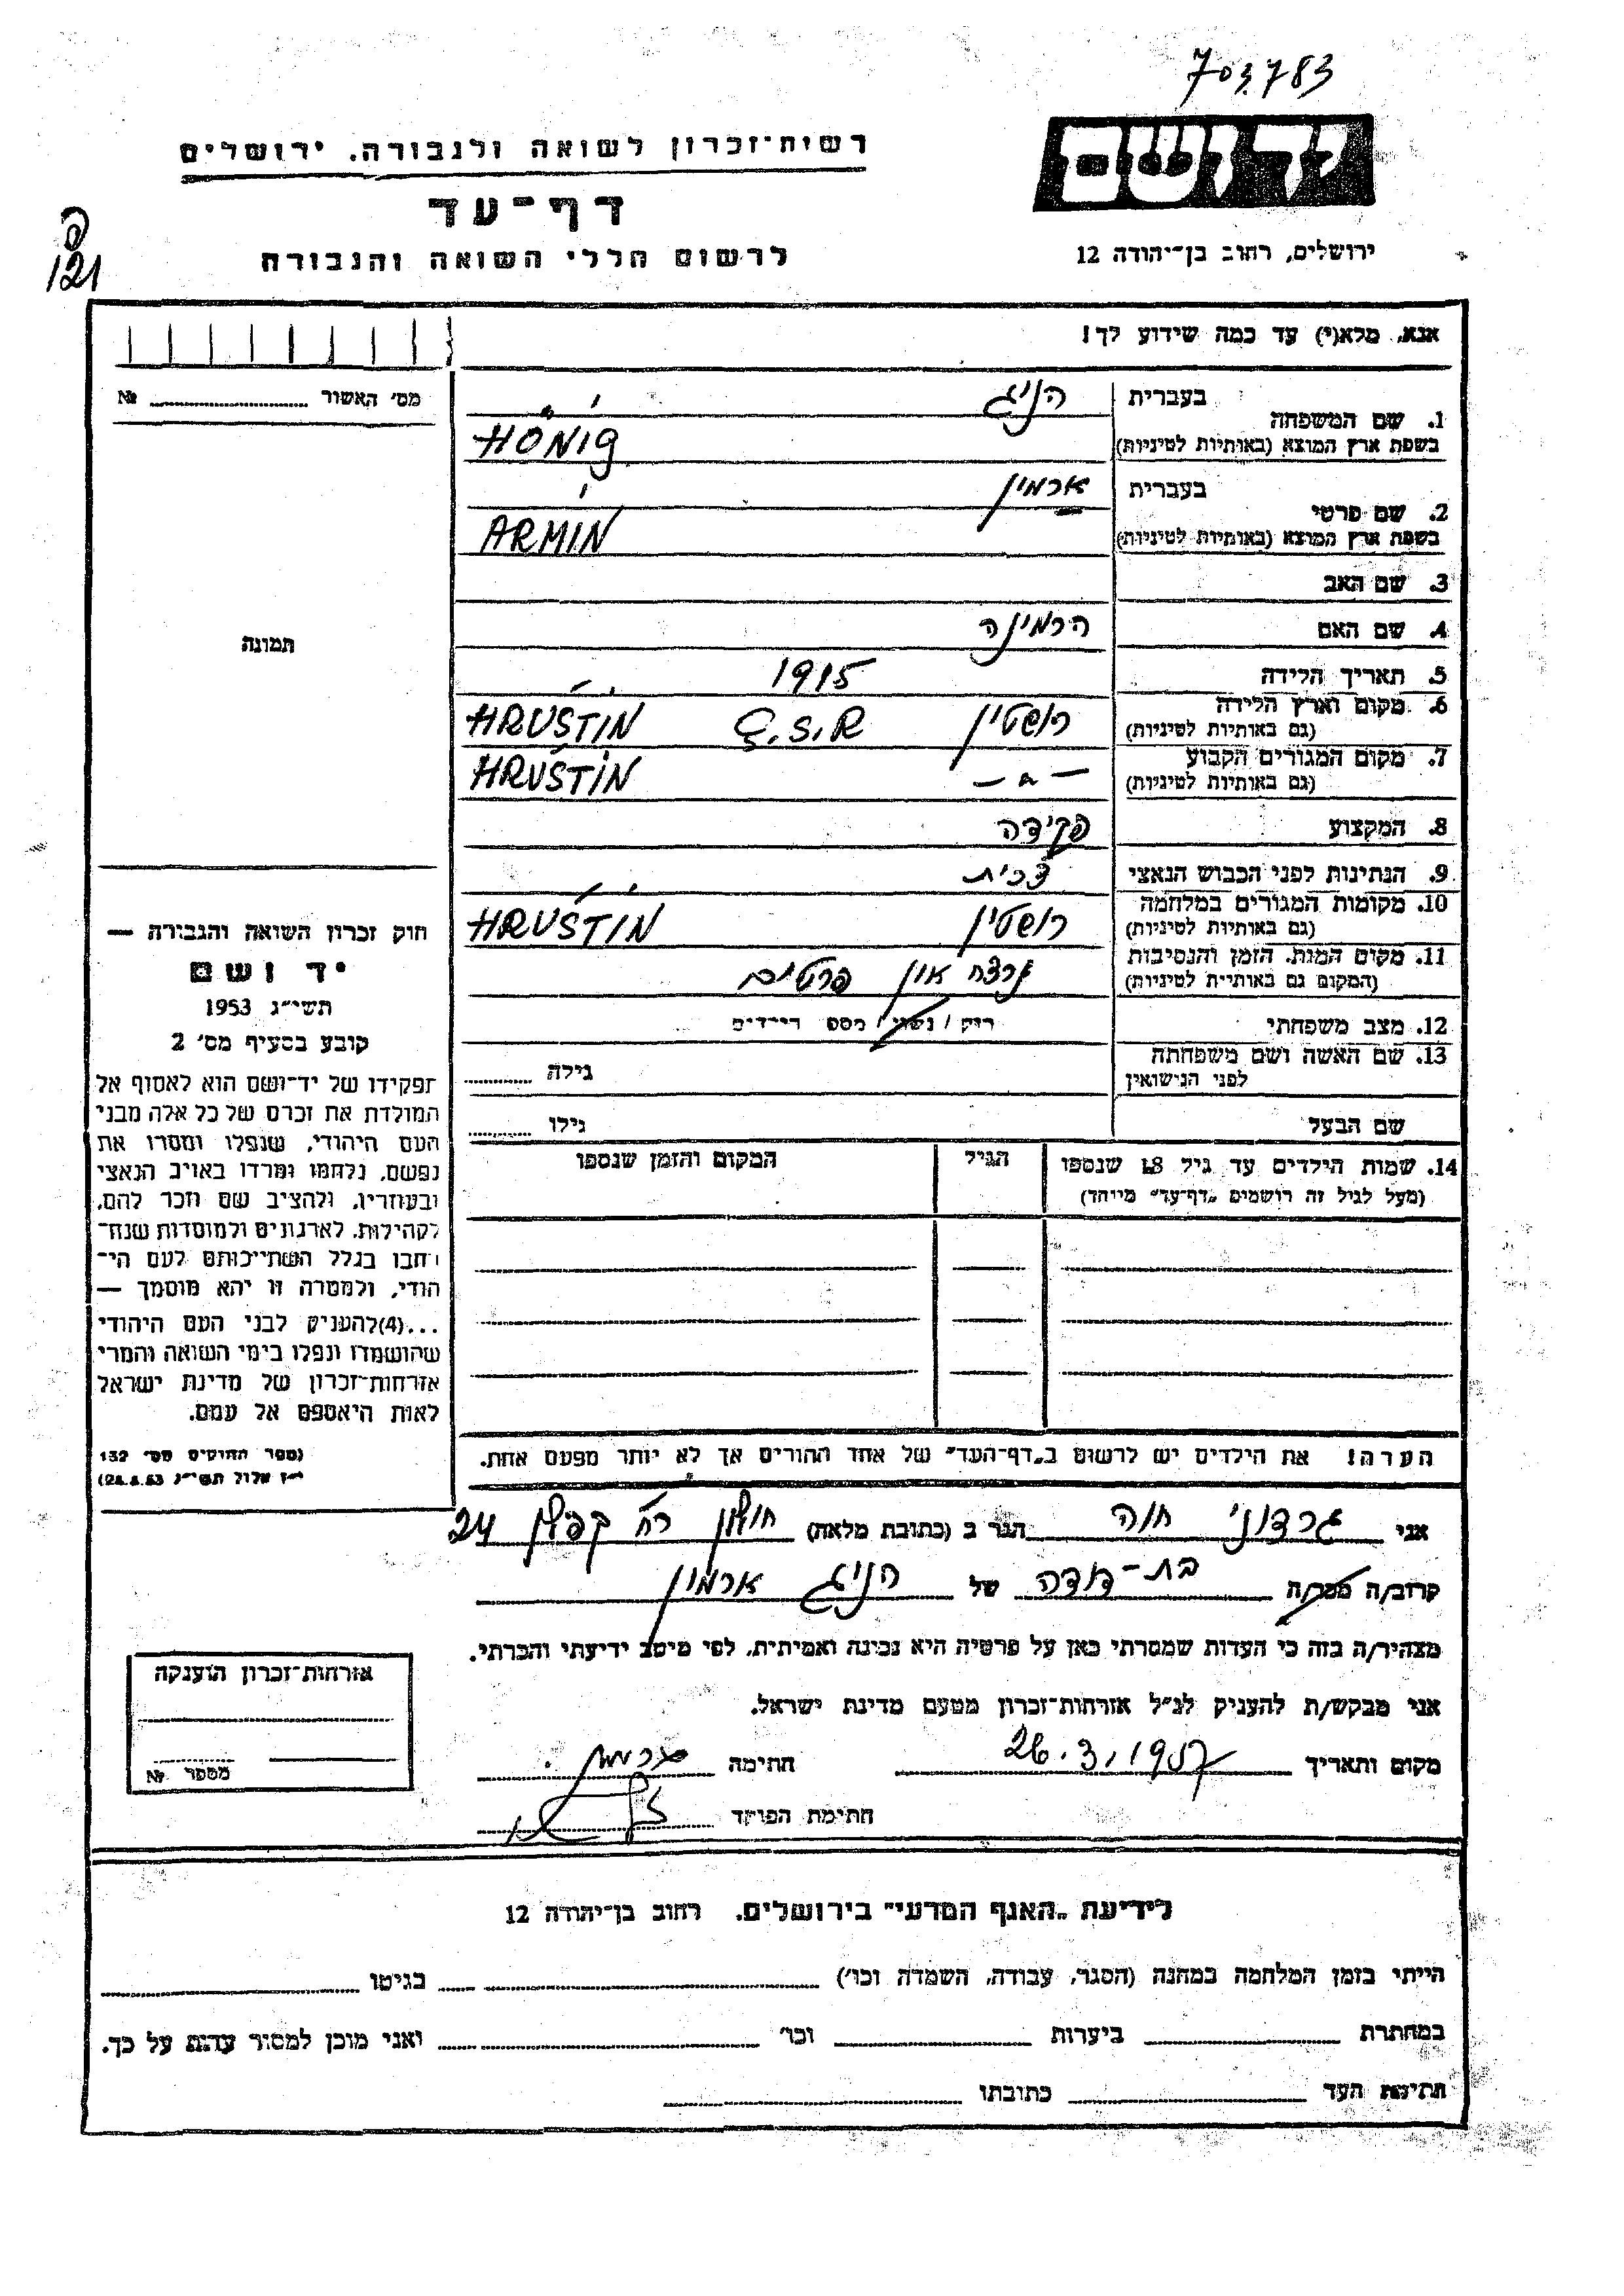 703.783
יד ושם
רשות־זכרון לשואה ולגבורה, ירושלים
דף־עד
ירושלים, רחוב בן־יהודה 12
לרשום חללי השואה והגבורה
121
אנא, מלא(י) עד כמה שידוע לך!
מס׳ האשור № 
תמונה
1. שם המשפחה
בעברית הניג
בשפת ארץ המוצא (באותיות לטיניות) HÖNIG
2. שם פרטי
בעברית ארמין
בשפת ארץ המוצא (באותיות לטיניות) ARMIN
3. שם האב
4. שם האם הרמינה
5. תאריך הלידה 1915
6. מקום וארץ הלידה רושטין Č.S.R HRUŠTÍN
(גם באותיות לטיניות)
7. מקום המגורים הקבוע — " — HRUŠTÍN
(גם באותיות לטיניות)
8. המקצוע פקידה
9. הנתינות לפני הכבוש הנאצי צ׳כית
10. מקומות המגורים במלחמה רושטין HRUŠTÍN
(גם באותיות לטיניות)
11. מקום המות, הזמן והנסיבות נרצח און פרטים
(המקום גם באותיות לטיניות)
12. מצב משפחתי רוק / נשוי / מספר הילדים
13. שם האשה ושם משפחתה גילה
לפני הנישואין
שם הבעל גילו
14. שמות הילדים עד גיל 18 שנספו הגיל המקום והזמן שנספו
(מעל לגיל זה רושמים „דף־עד״ מיוחד)
הערה! את הילדים יש לרשום ב„דף־העד״ של אחד ההורים אך לא יותר מפעם אחת.
חוק זכרון השואה והגבורה —
יד ושם
תשי״ג 1953
קובע בסעיף מס׳ 2
תפקידו של יד־ושם הוא לאסוף אל
המולדת את זכרם של כל אלה מבני
העם היהודי, שנפלו ומסרו את
נפשם, נלחמו ומרדו באויב הנאצי
ובעוזריו, ולהציב שם וזכר להם,
לקהילות, לארגונים ולמוסדות שנח־
רבו בגלל השתייכותם לעם הי־
הודי, ולמטרה זו יהא מוסמך —
...(4)להעניק לבני העם היהודי
שהושמדו ונפלו בימי השואה והמרי
אזרחות־זכרון של מדינת ישראל
לאות היאספם אל עמם.
(ספר החוקים מס׳ 132
י״ז אלול תשי״ג 28.8.53)
אני גרדוני חוה הגר ב (כתובת מלאה) חולון רח׳ קפלן 24
קרוב/ה מכר/ה בת-דודה של הניג ארמין
מצהיר/ה בזה כי העדות שמסרתי כאן על פרטיה היא נכונה ואמיתית, לפי מיטב ידיעתי והכרתי.
אני מבקש/ת להעניק לנ״ל אזרחות־זכרון מטעם מדינת ישראל.
מקום ותאריך 26.3.1957 חתימה
חתימת הפוקד
אזרחות־זכרון הוענקה
מספר №
לידיעת „האגף המדעי״ בירושלים, רחוב בן־יהודה 12
הייתי בזמן המלחמה במחנה (הסגר, עבודה, השמדה וכו׳) בגיטו
במחתרת ביערות וכו׳ ואני מוכן למסור עדות על כך.
חתימת העד כתובתו